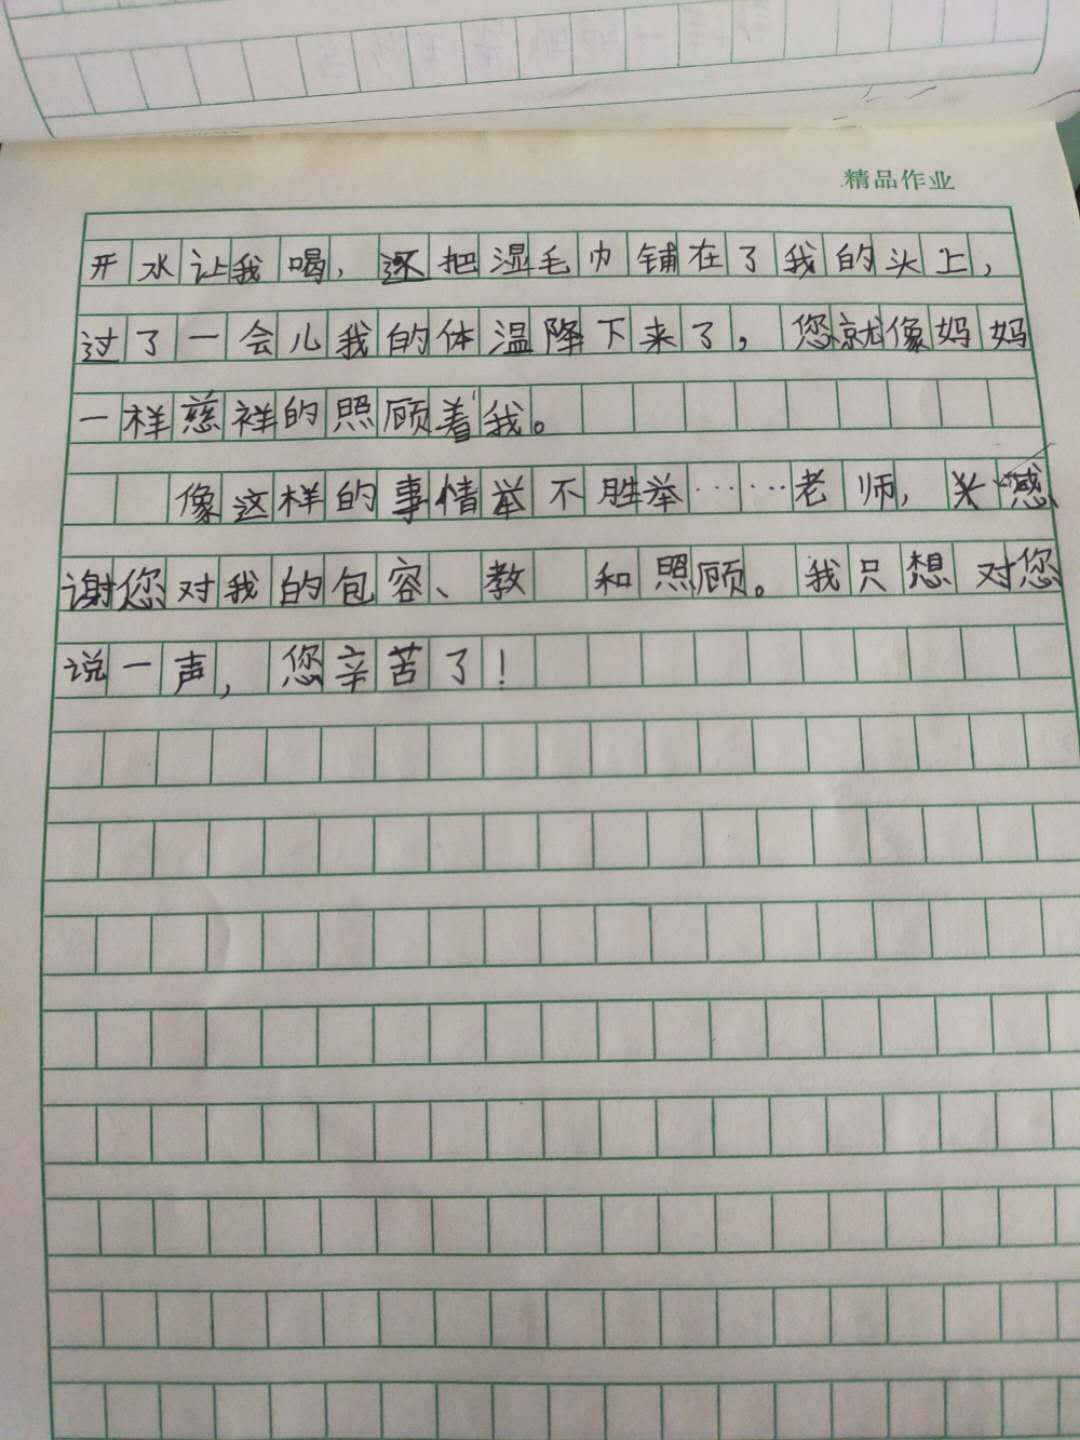 精品作业
开水让我喝，还把湿毛巾铺在了我的头上，
过了一会儿我的体温降下来了，您就像妈妈
一样慈祥的照顾着我。
像这样的事情举不胜举……老师，感
谢您对我的包容、教 和照顾。我只想对您
说一声，您辛苦了！